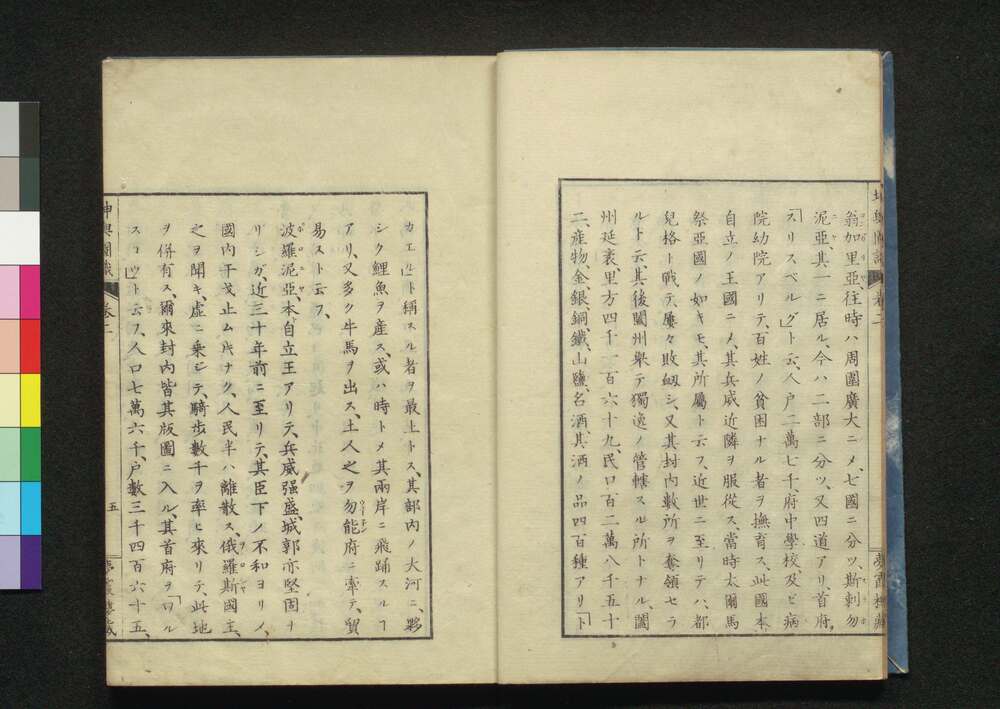 翁加里亞、往時ハ周圍廣大ニメ、七國ニ分ツ、斯剌勿
泥亞、其一ニ居ル、今ハ二部ニ分ツ、又四道アリ、首府
「スリスベルグ」ト云、人戸二萬七千、府中學校、及ビ病
院幼院アリテ、百姓ノ貧困ナル者ヲ撫育ス、此國本
自立ノ王國ニメ、其兵威近隣ヲ服從ス、當時太爾馬
祭亞國ノ如キモ、其所屬ト云フ、近世ニ至リテハ、都
兒格ト戰テ、屢々敗衂シ、又其封内數所ヲ奪領セラ
ルト云、其後闔州擧テ獨逸ノ管轄スル所トナル、闔
州延袤、里方四千一百六十九、民口百二萬八千五十
二、産物、金、銀、銅、鐵、山鹽、名酒、其酒ノ品四百種アリ、「ト
カエル」ト稱スル者ヲ最上トス、其部内ノ大河ニ、夥
シク鯉魚ヲ産ス、或ハ時トメ其兩岸ニ飛踊スルヿ
アリ、又多ク牛馬ヲ出ス、土人之ヲ勿能府ニ牽テ、貿
易スト云フ、
波羅泥亞、本自立王アリテ、兵威强盛、城郭亦堅固ナ
リシガ、近三十年前ニ至リテ、其臣下ノ不和ヨリノ、
國内干戈止ム片ナク、人民半ハ離散ス、俄羅斯國主、
之ヲ聞キ、虚ニ乘ジテ、騎步數千ヲ率ヒ來リテ、此地
ヲ併有ス、爾來封内皆其版圖ニ入ル、其首府ヲ「ワル
スコウ」ト云フ、人口七萬六千、戸數三千四百六十五、
坤輿圖識 卷二
五
夢霞樓藏